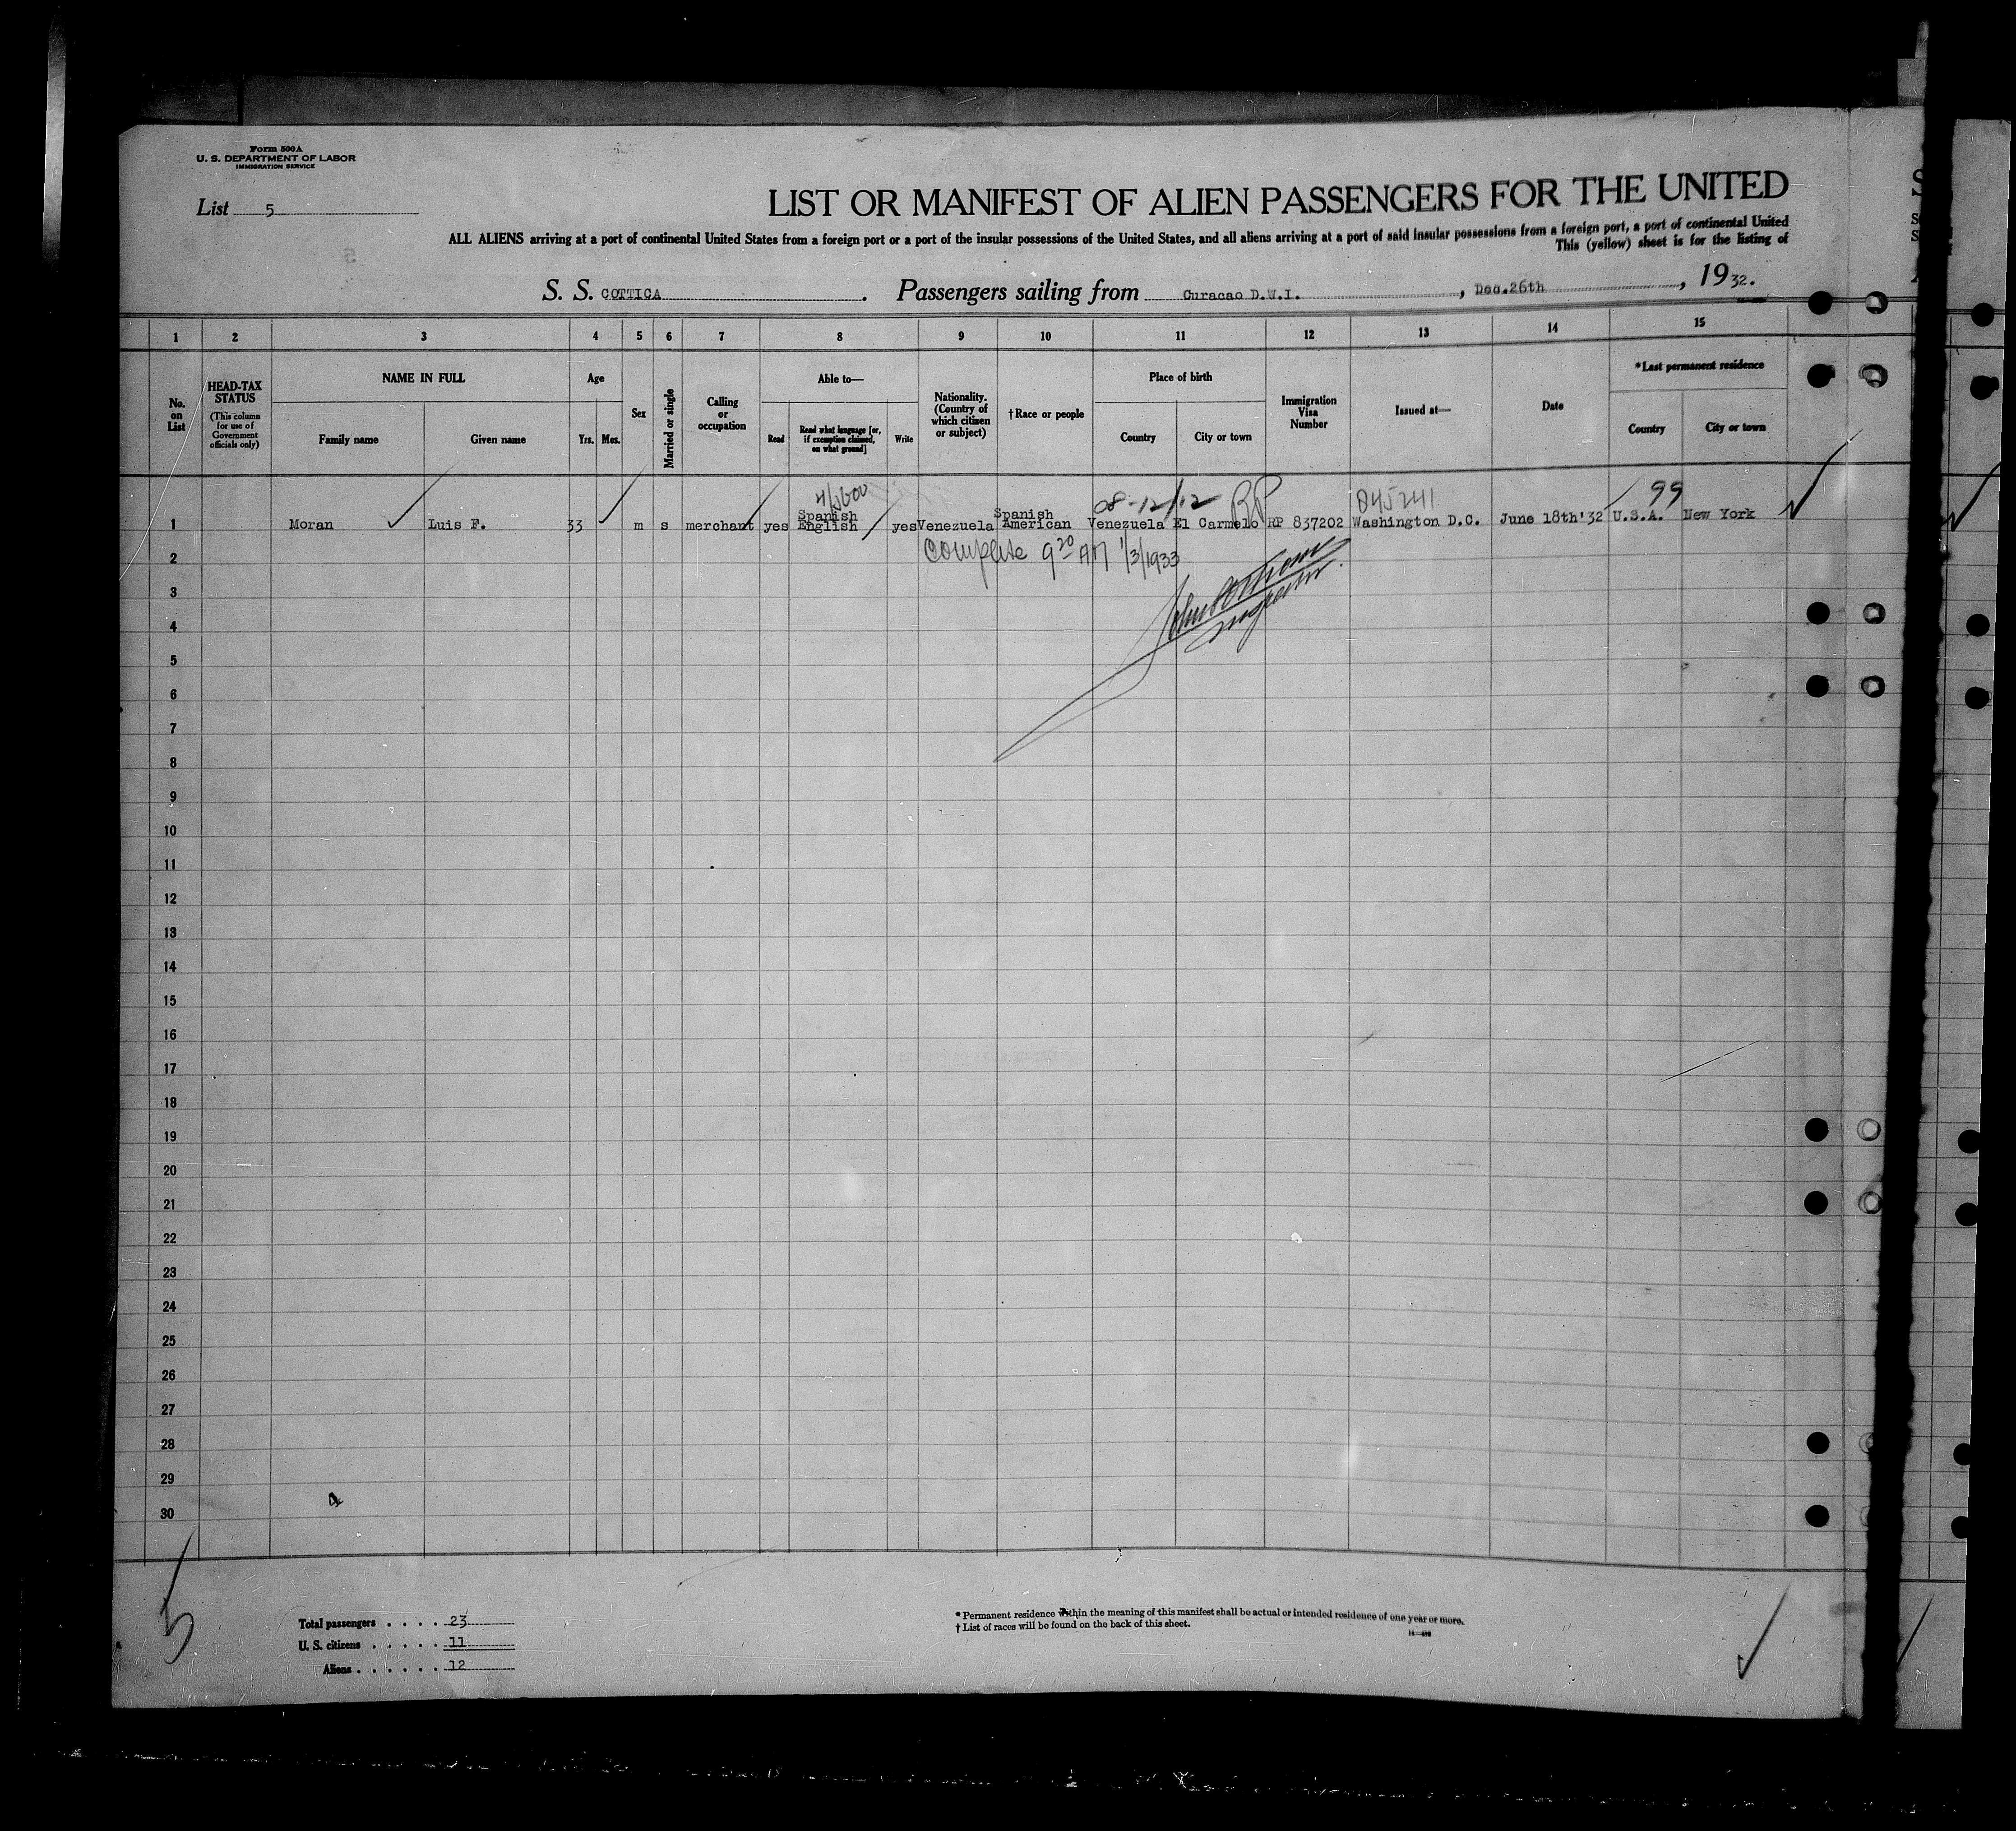 Form 500A
U. S. DEPARTMENT OF LABOR
IMMIGRATION SERVICE
List 5
LIST OR MANIFEST OF ALIEN PASSENGERS FOR THE UNITED
ALL ALIENS arriving at a port of continental United States from a foreign port or a port of the insular possessions of the United States, and all aliens arriving at a port of said insular possessions from a foreign port, a port of continental United
This (yellow) sheet is for the listing of
S. S. COTTICA. Passengers sailing from Curacao D.W.I., Dec.26th, 1932.
1 2 3 4 5 6 7 8 9 10 11 12 13 14 15
No. on List
HEAD-TAX STATUS
(This column for use of Government officials only)
NAME IN FULL
Family name
Given name
Age
Yrs. Mos.
Sex
Married or single
Calling or occupation
Able to—
Read
Read what language [or, if exemption claimed, on what ground]
Write
Nationality. (Country of which citizen or subject)
†Race or people
Place of birth
Country
City or town
Immigration Visa Number
Issued at—
Date
*Last permanent residence
Country
City or town
08-12/12 RP 845241 99
Spanish Spanish
1 Moran Luis F. 33 m s merchant yes English yes Venezuela American Venezuela El Carmelo RP 837202 Washington D.C. June 18th'32 U.S.A. New York
2 Complete 9 20 AM 1/3/1933
3
Inspector.
4
5
6
7
8
9
10
11
12
13
14
15
16
17
18
19
20
21
22
23
24
25
26
27
28
29
4
30
5
Total passengers . . . . 23
U. S. citizens . . . . . 11
Aliens . . . . . . 12
* Permanent residence within the meaning of this manifest shall be actual or intended residence of one year or more.
† List of races will be found on the back of this sheet.